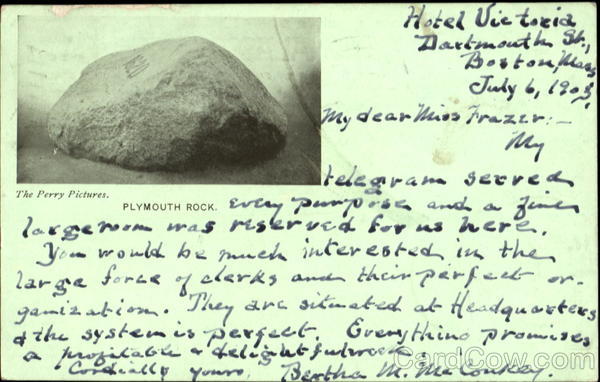 Hotel Victoria
Dartmouth St.,
Boston, Mass
July 6, 1903,
My dear Miss Frazer:—
My
telegram served
The Perry Pictures.
PLYMOUTH ROCK.
every purpose and a fine
large room was reserved for us here.
You would be much interested in the
large force of clerks and their perfect or-
ganization. They are situated at Headquarters
& the system is perfect. Everything promises
a profitable & delightful week
Cordially yours, Bertha M. McConkey.
CardCow.com